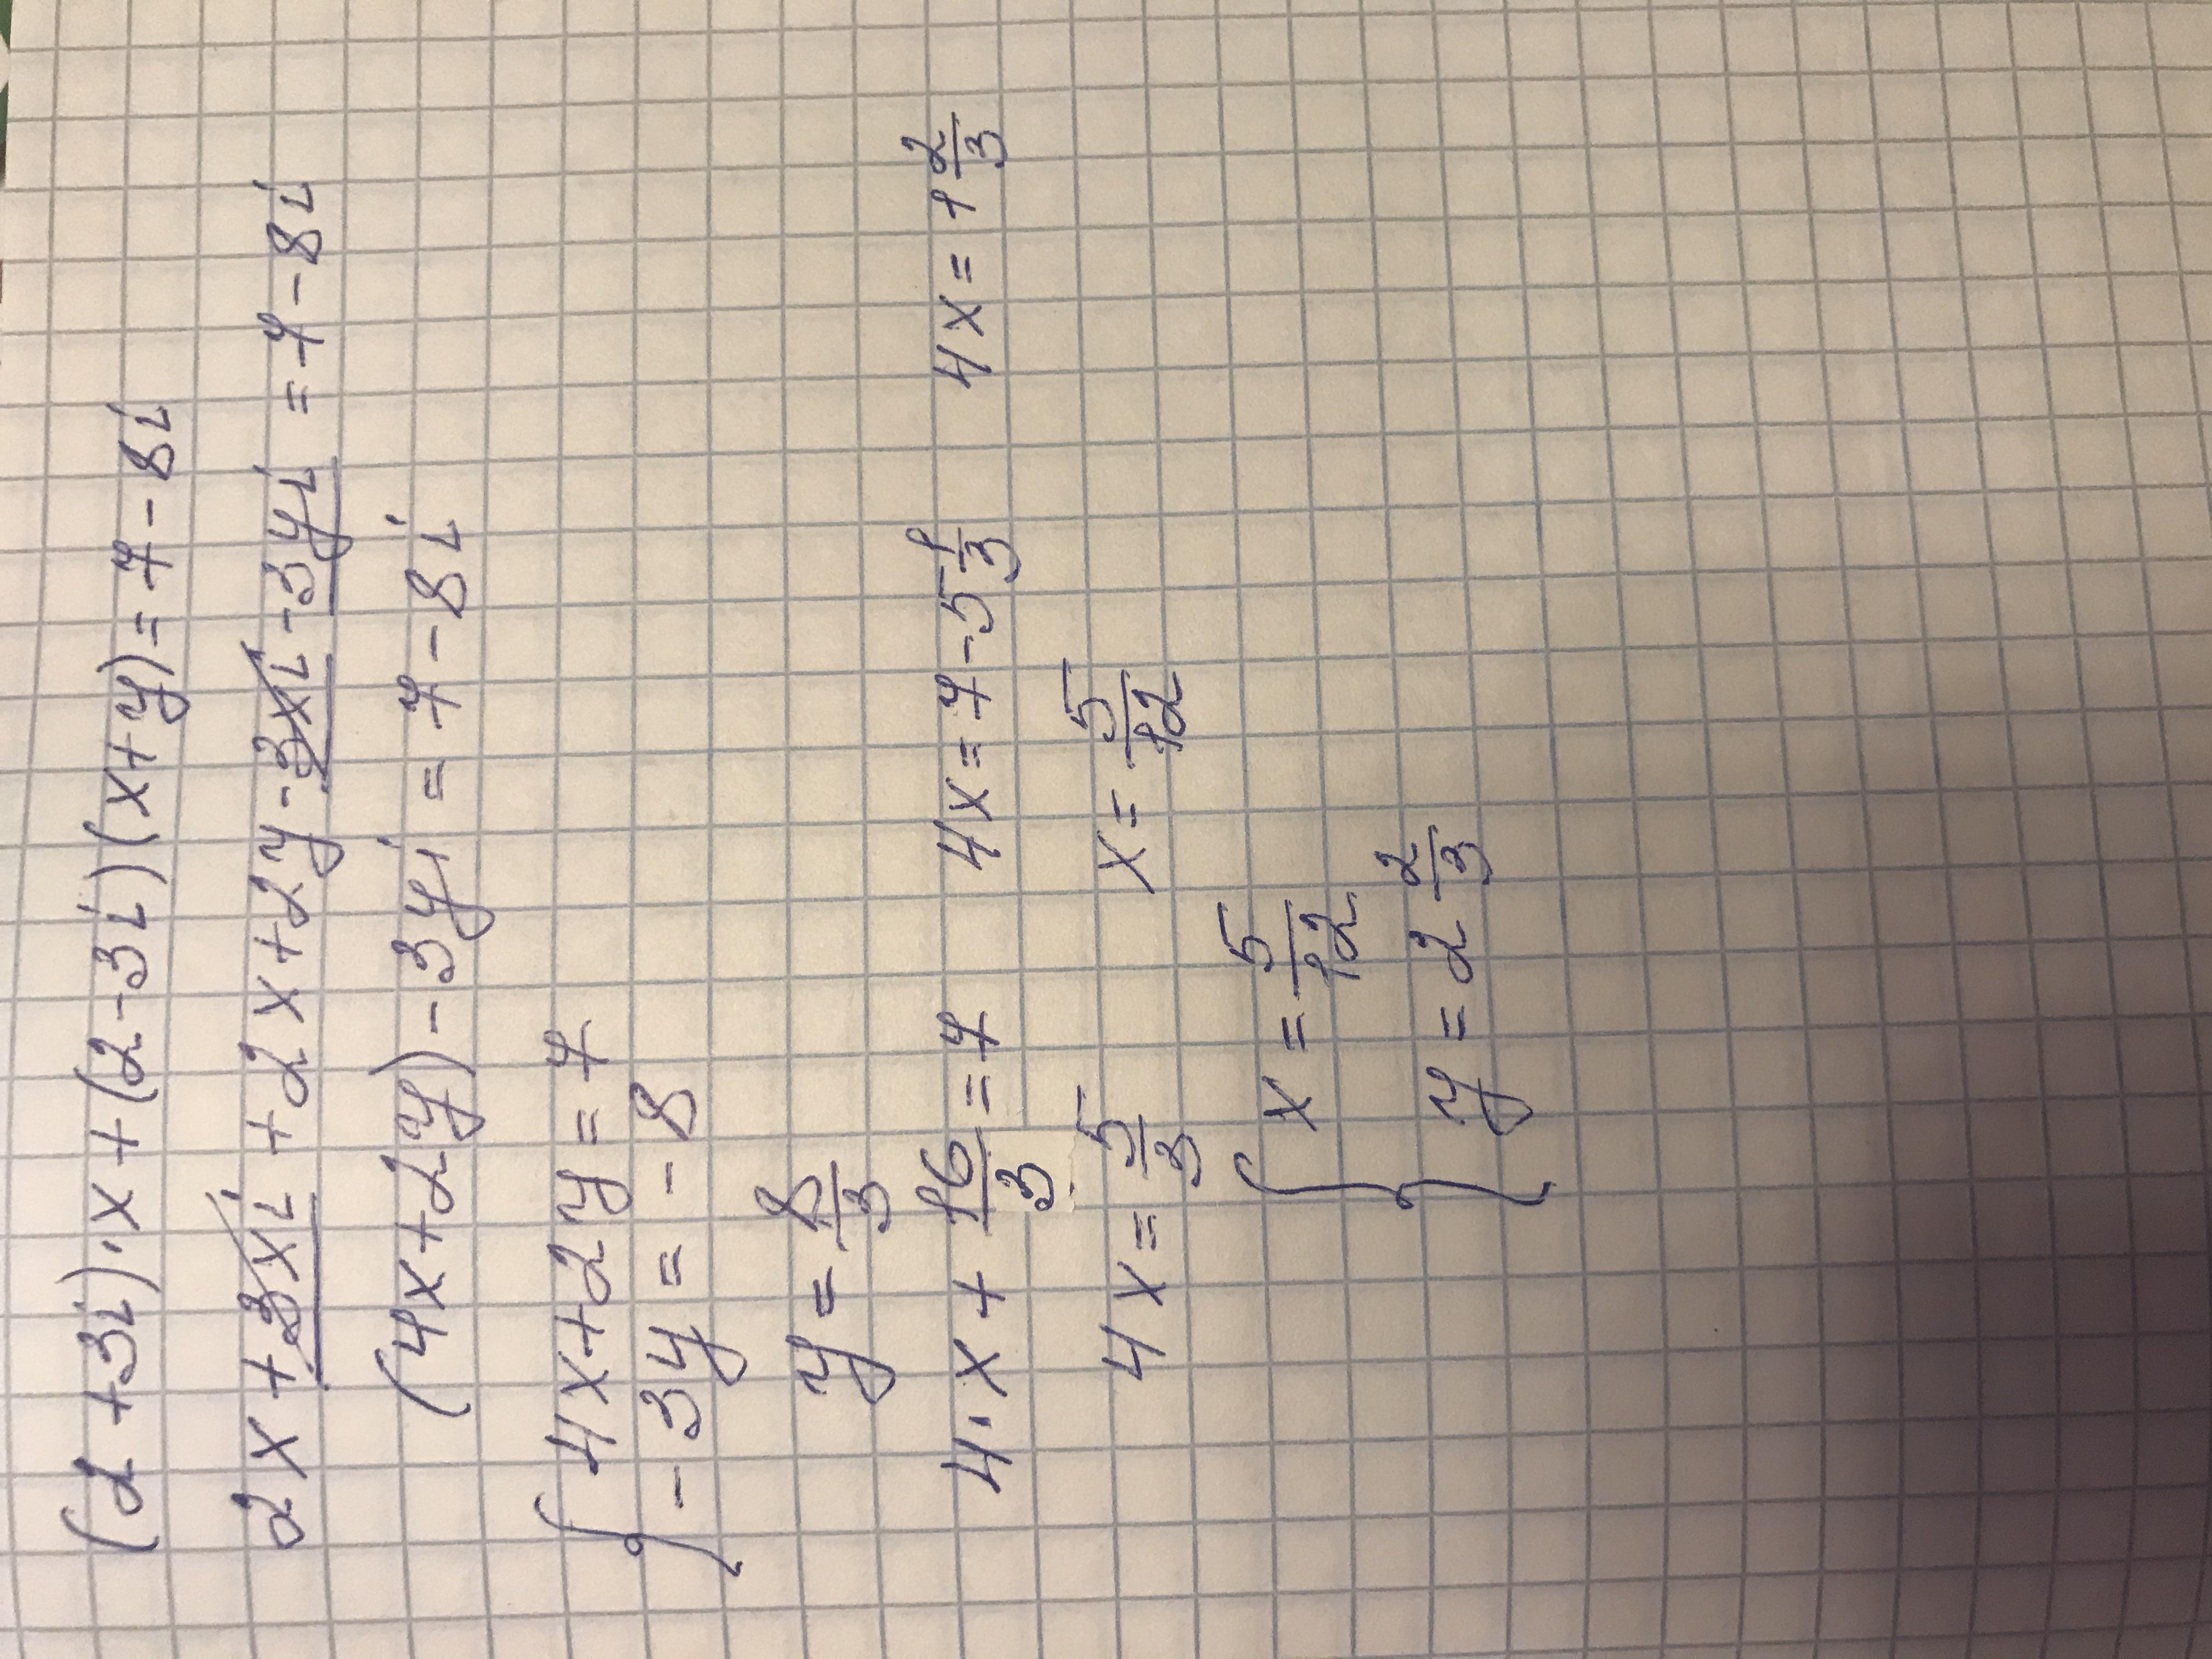 (2+3i)·x+(2-3i)(x+y)=7-8i
2x+3xi+2x+2y-3xi-3yi=7-8i
(4x+2y)-3yi=7-8i
{4x+2y=7
-3y=-8
y=8/3
4·x+16/3=7 4x=7-5 1/3 4x=1 2/3
4x=5/3 x=5/12
{x=5/12
y=2 2/3